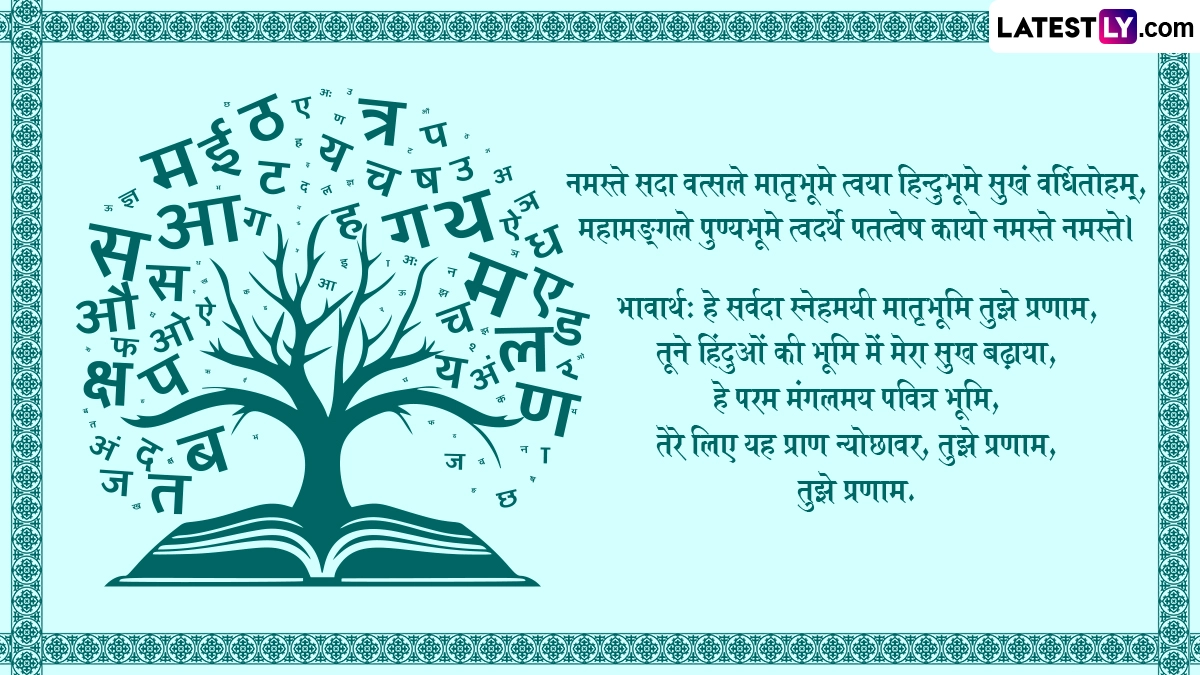 LATESTLY.com
नमस्ते सदा वत्सले मातृभूमे त्वया हिन्दुभूमे सुखं वर्धितोहम्,
महामङ्गले पुण्यभूमे त्वदर्थे पतत्वेष कायो नमस्ते नमस्ते।
भावार्थ: हे सर्वदा स्नेहमयी मातृभूमि तुझे प्रणाम,
तूने हिंदुओं की भूमि में मेरा सुख बढ़ाया,
हे परम मंगलमय पवित्र भूमि,
तेरे लिए यह प्राण न्योछावर, तुझे प्रणाम,
तुझे प्रणाम.